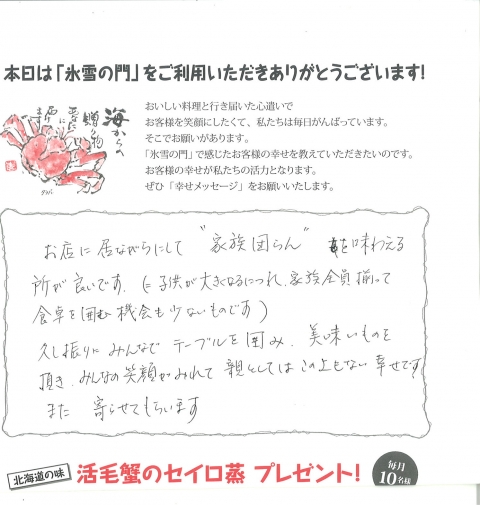 本日は「氷雪の門」をご利用いただきありがとうございます!
海からの
贈り物
おいしい料理と行き届いた心遣いで
お客様を笑顔にしたくて、私たちは毎日がんばっています。
そこでお願いがあります。
「氷雪の門」で感じたお客様の幸せを教えていただきたいのです。
お客様の幸せが私たちの活力となります。
ぜひ「幸せメッセージ」をお願いいたします。
お店に居ながらにして "家族団らん" を味わえる
所が良いです。(子供が大きくなるにつれ、家族全員揃って
食卓を囲む機会も少ないものです)
久し振りにみんなでテーブルを囲み、美味いものを
頂き、みんなの笑顔がみれて親としてはこの上もない幸せです
また 寄らせてもらいます
北海道の味
活毛蟹のセイロ蒸 プレゼント!
毎月
10名様